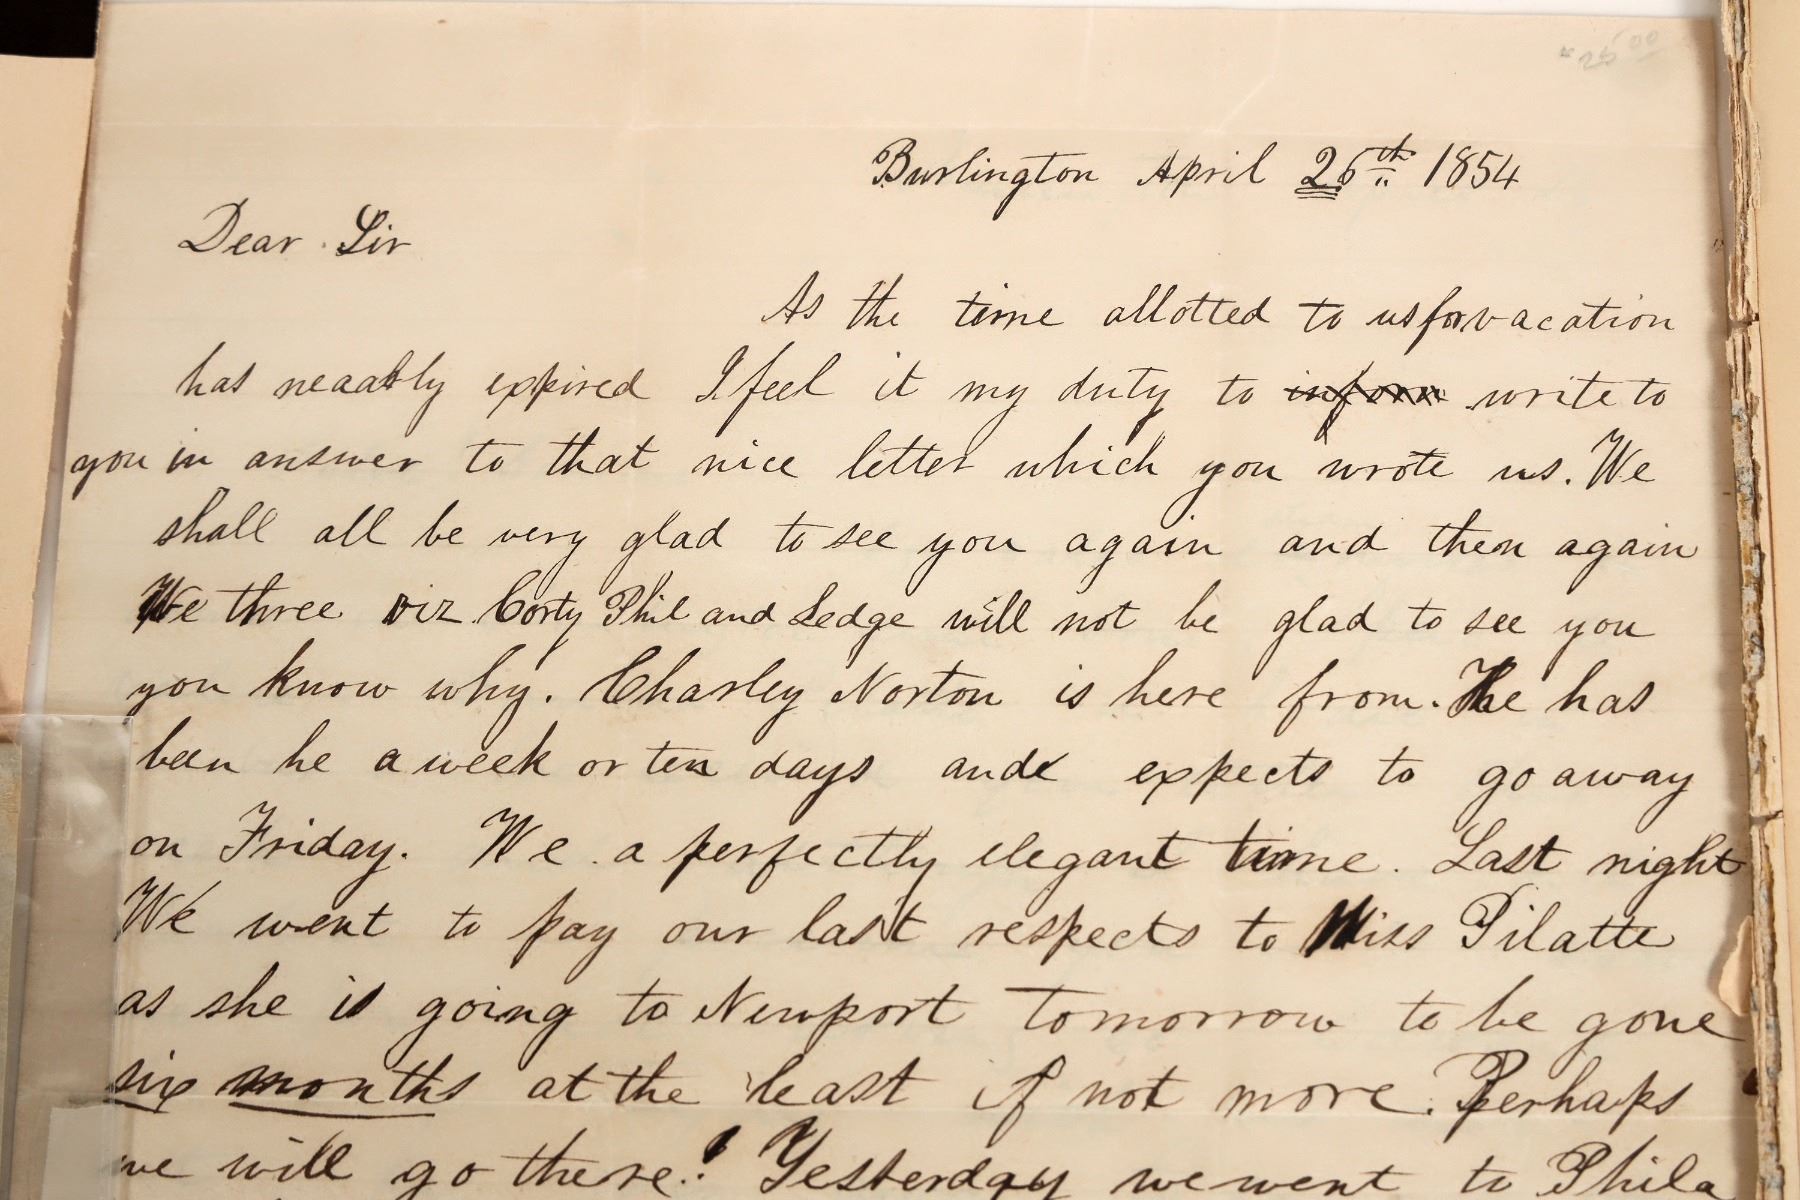 $25.00
Burlington April 26th 1854
Dear Sir
As the time allotted to us for vacation
has neaarly expired I feel it my duty to inform write to
you in answer to that nice letter which you wrote us. We
shall all be very glad to see you again and then again
We three viz Corty Phil and Ledge will not be glad to see you
you know why. Charley Norton is here from. He has
been he a week or ten days and expects to go away
on Friday. We a perfectly elegant time. Last night
We went to pay our last respects to Miss Pilatte
as she is going to Newport tomorrow to be gone
six months at the least if not more. Perhaps
we will go there! Yesterday we went to Phila